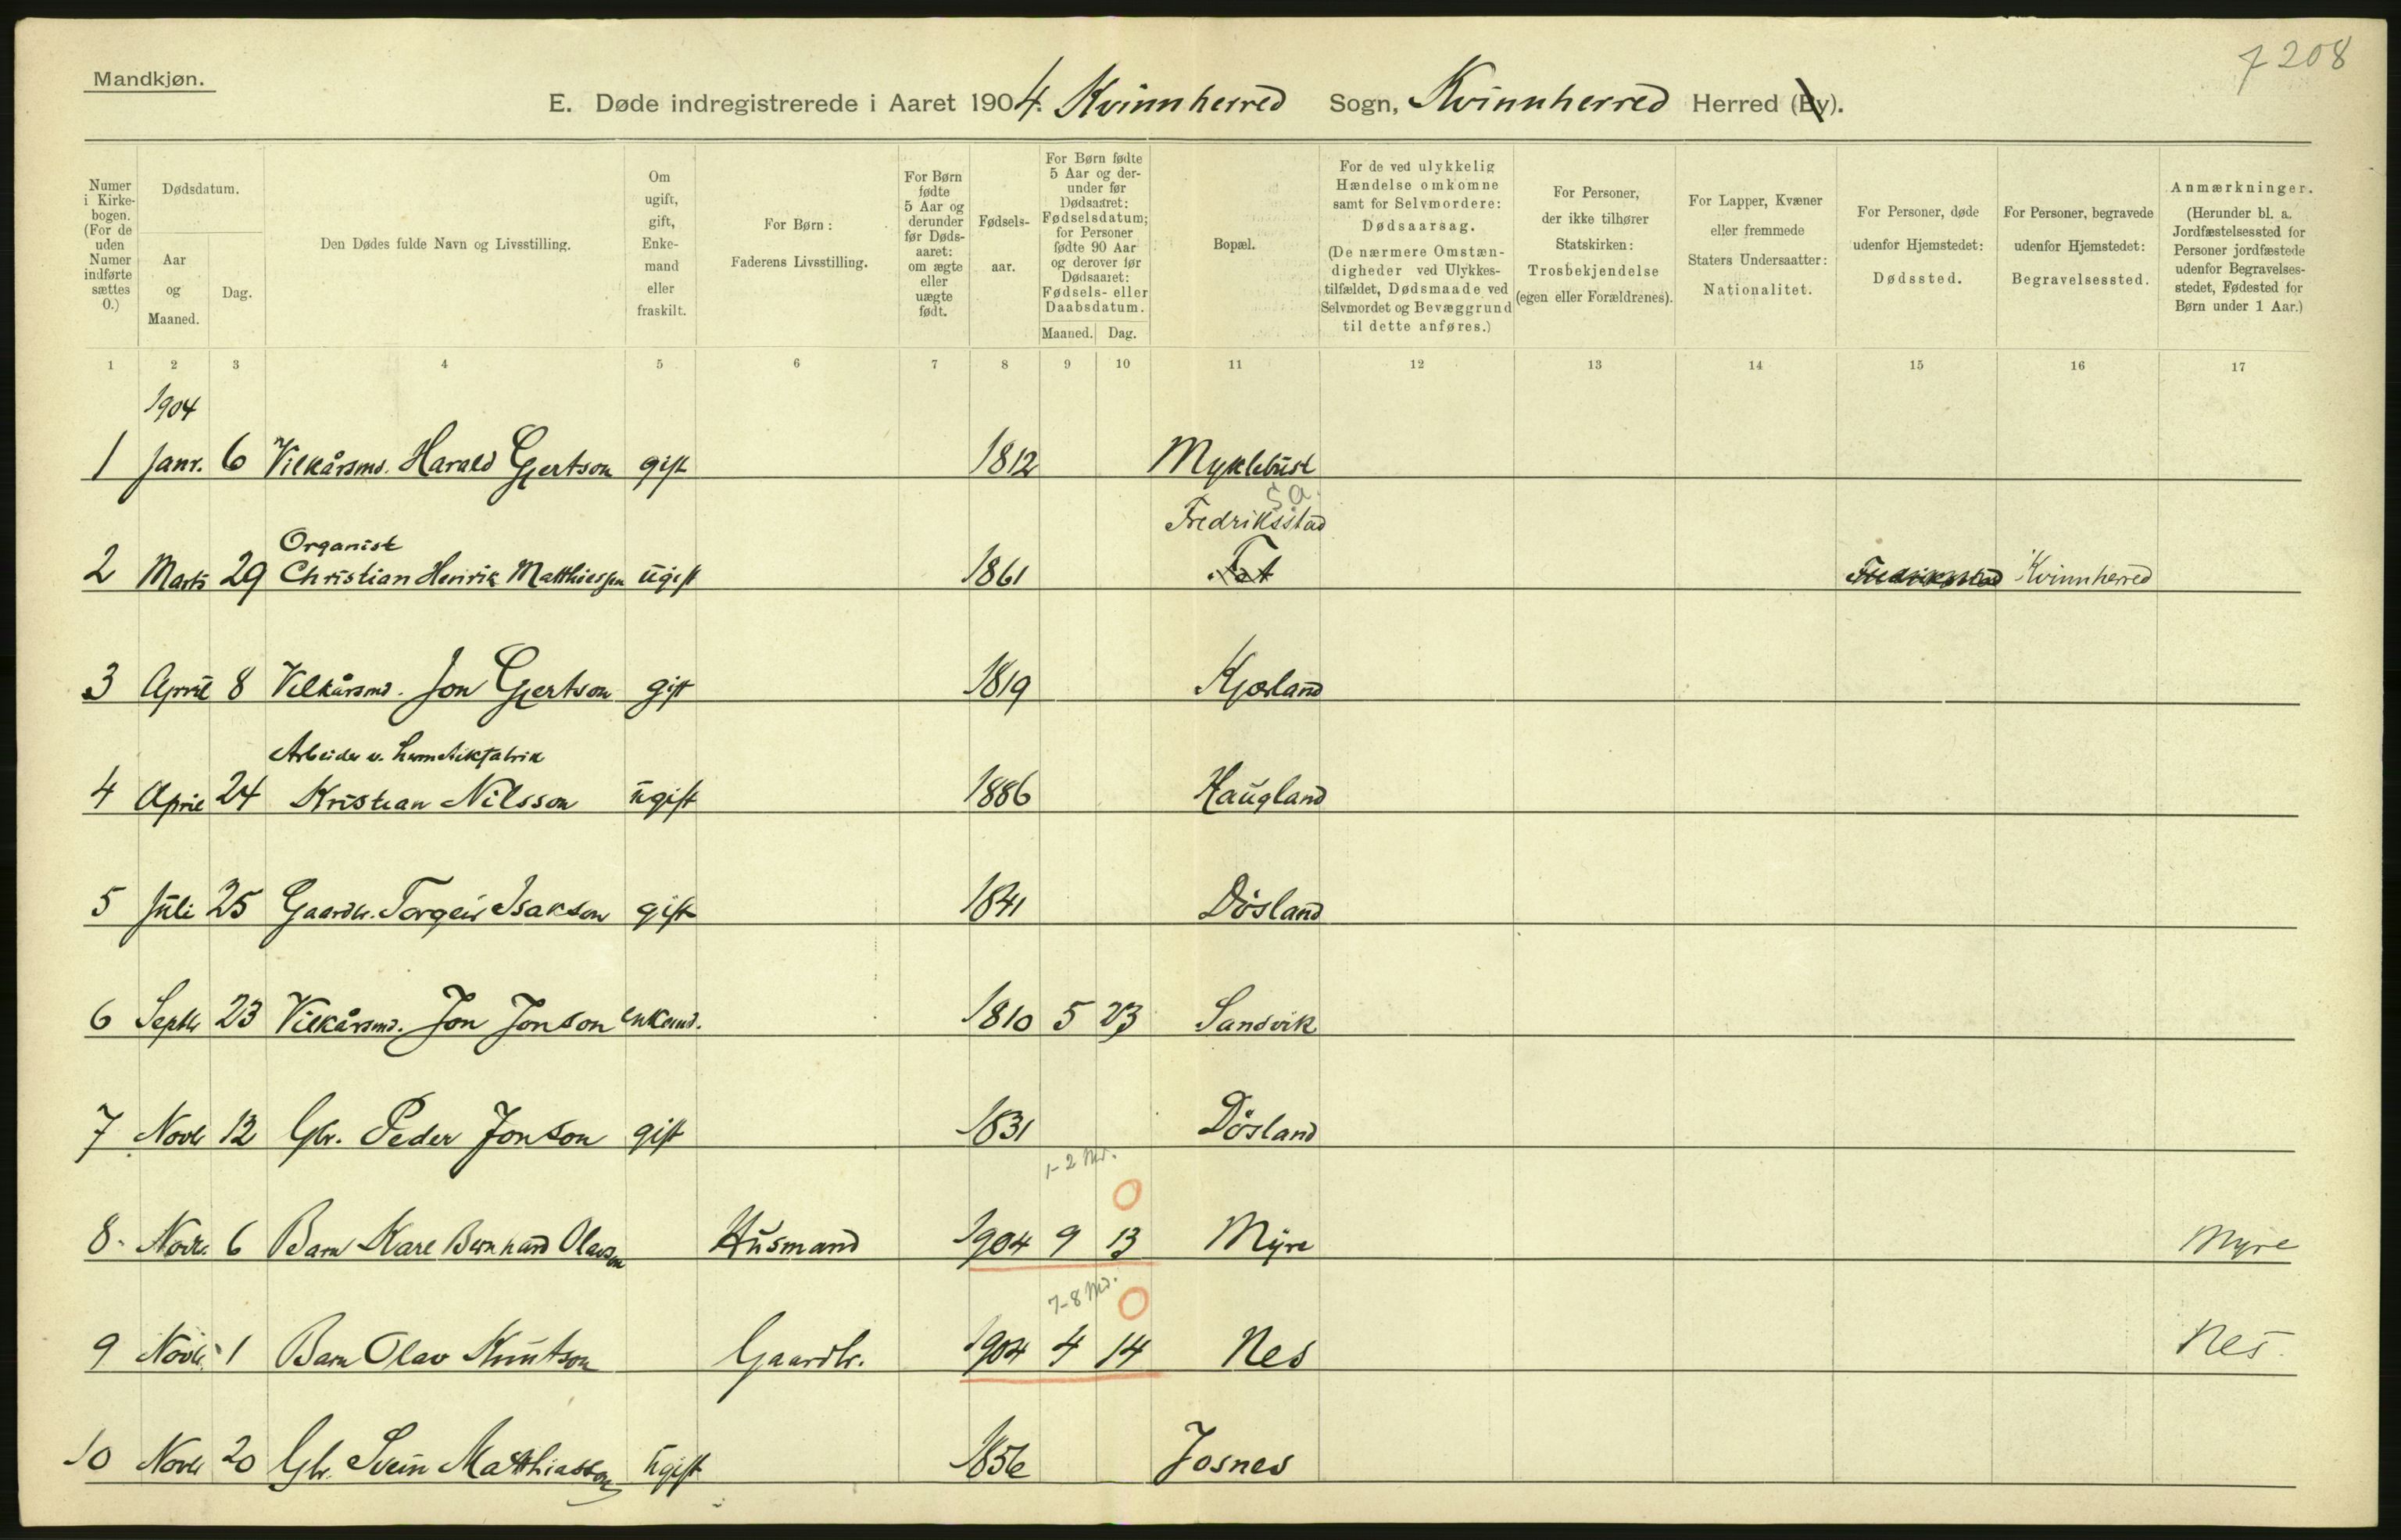 7 208
Mandkjøn.
E. Døde indregistrerede i Aaret 1904. Kvinnherred Sogn, Kvinnherred Herred (By).
Numer i Kirke-bogen. (For de uden Numer indførte sættes 0.)
Dødsdatum.
Aar og Maaned.
Dag.
Den Dødes fulde Navn og Livsstilling.
Om ugift, gift, Enke-mand eller fraskilt.
For Børn: Faderens Livsstilling.
For Børn fødte 5 Aar og derunder før Døds-aaret: om ægte eller uægte født.
Fødsels-aar.
For Børn fødte 5 Aar og der-under før Dødsaaret: Fødselsdatum; for Personer fødte 90 Aar og derover før Dødsaaret: Fødsels- eller Daabsdatum.
Maaned. Dag.
Bopæl.
For de ved ulykkelig Hændelse omkomne samt for Selvmordere: Dødsaarsag. (De nærmere Omstæn-digheder ved Ulykkes-tilfældet, Dødsmaade ved Selvmordet og Bevæggrund til dette anføres.)
For Personer, der ikke tilhører Statskirken: Trosbekjendelse (egen eller Forældrenes).
For Lapper, Kvæner eller fremmede Staters Undersaatter: Nationalitet.
For Personer, døde udenfor Hjemstedet: Dødssted.
For Personer, begravede udenfor Hjemstedet: Begravelsessted.
Anmærkninger. (Herunder bl. a. Jordfæstelsessted for Personer jordfæstede udenfor Begravelses-stedet, Fødested for Børn under 1 Aar.)
1 2 3 4 5 6 7 8 9 10 11 12 13 14 15 16 17
1904
1 Janr. 6 Vilkårsmd. Harald Gjertson gift 1812 Myklebust
5a.
Organist Fredriksstad
2 Marts 29 Christian Henrik Matthiessen ugift 1861 Fredriksstad Kvinnherred
3 April 8 Vilkårsmd. Jon Gjertson gift 1819 Kjærland
Arbeider v. hermetikfabrik
4 April 24 Kristian Nilsson ugift 1886 Haugland
5 Juli 25 Gaardbr. Torgeir Isakson gift 1841 Døsland
6 Septbr 23 Vilkårsmd. Jon Jonson enkemd. 1810 5 23 Sandvik
7 Novbr 12 Gbr. Peder Jonson gift 1831 Døsland
1-2 Md. 0
8 Novbr. 6 Barn Kare Bernhard Olavson Husmand 1904 9 13 Myre Myre
7-8 Md. 0
9 Novbr. 1 Barn Olav Knutson Gaardbr. 1904 4 14 Nes Nes.
10 Novbr 20 Gbr. Svein Matthiasson ugift 1856 Josnes